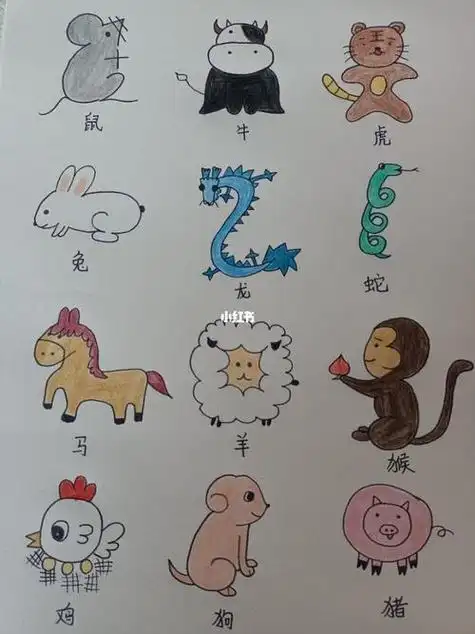 鼠
牛
王
虎
兔
龙
蛇
小红书
马
羊
猴
鸡
狗
猪